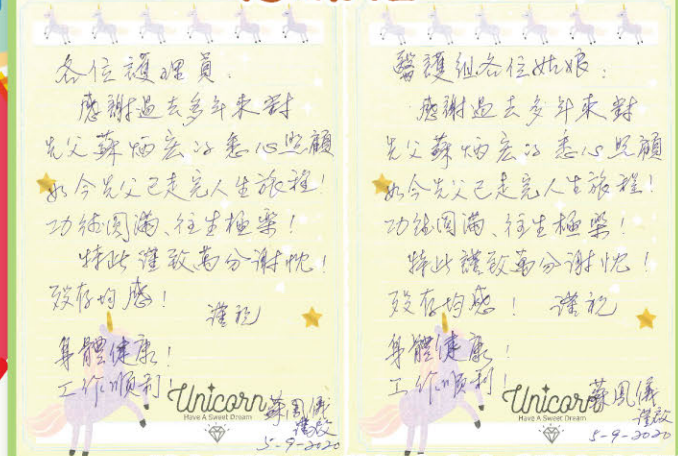 各位護理員：
感謝過去多年來對
先父蘇炳宏的悉心照顧
如今先父已走完人生旅程！
功德圓滿、往生極樂！
特此謹致萬分谢忱！
殁存均感！
謹祝
身體健康！
工作順利！
Unicorn
Have A Sweet Dream
蘇鳳儀
謹啟
5-9-2020
醫護組各位姑娘：
感謝過去多年來對
先父蘇炳宏的悉心照顧
如今先父已走完人生旅程！
功德圓滿、往生極樂！
特此謹致萬分谢忱！
殁存均感！
謹祝
身體健康！
工作順利！
Unicorn
Have A Sweet Dream
蘇鳳儀
謹啟
5-9-2020